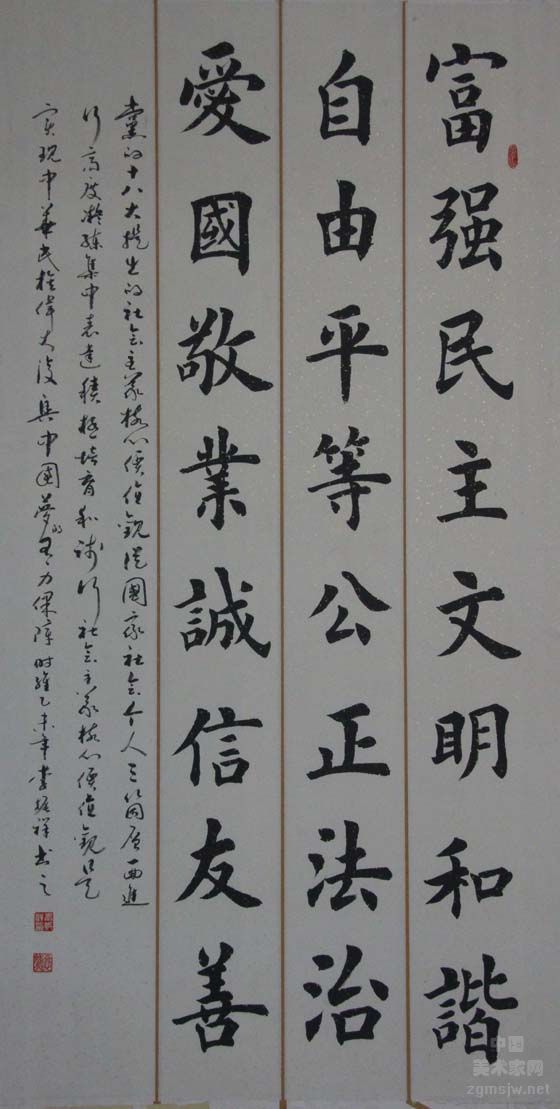 富强民主文明和諧
自由平等公正法治
愛國敬業誠信友善
黨的十八大提出的社会主义核心價值觀從國家社会个人三个層面進
行高度凝練集中表達積極培育和践行社会主义核心價值觀是
实現中華民族偉大復興中國夢的有力保障时维乙未年李振祥书之
中国美术家网
zgmsjw.net